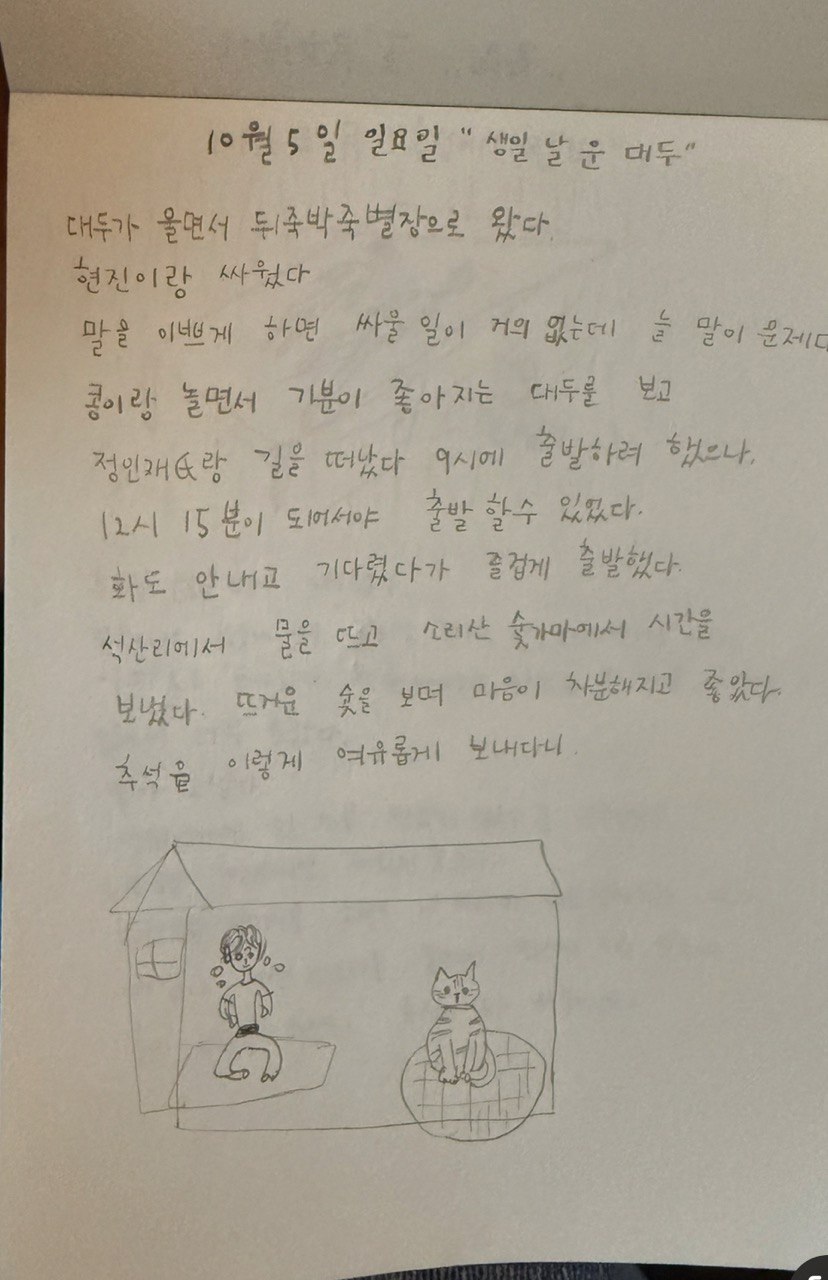 10월 5일 일요일 "생일 날 운 대두"
대두가 울면서 뒤죽박죽별장으로 왔다.
현진이랑 싸웠다
말을 이쁘게 하면 싸울 일이 거의 없는데 늘 말이 문제다
콩이랑 놀면서 기분이 좋아지는 대두를 보고
정인재氏랑 길을 떠났다 9시에 출발하려 했으나,
12시 15분이 되어서야 출발 할수 있었다.
화도 안내고 기다렸다가 즐겁게 출발했다.
석산리에서 물을 뜨고 소리산 숯가마에서 시간을
보냈다. 뜨거운 숯을 보며 마음이 차분해지고 좋았다.
추석을 이렇게 여유롭게 보내다니.